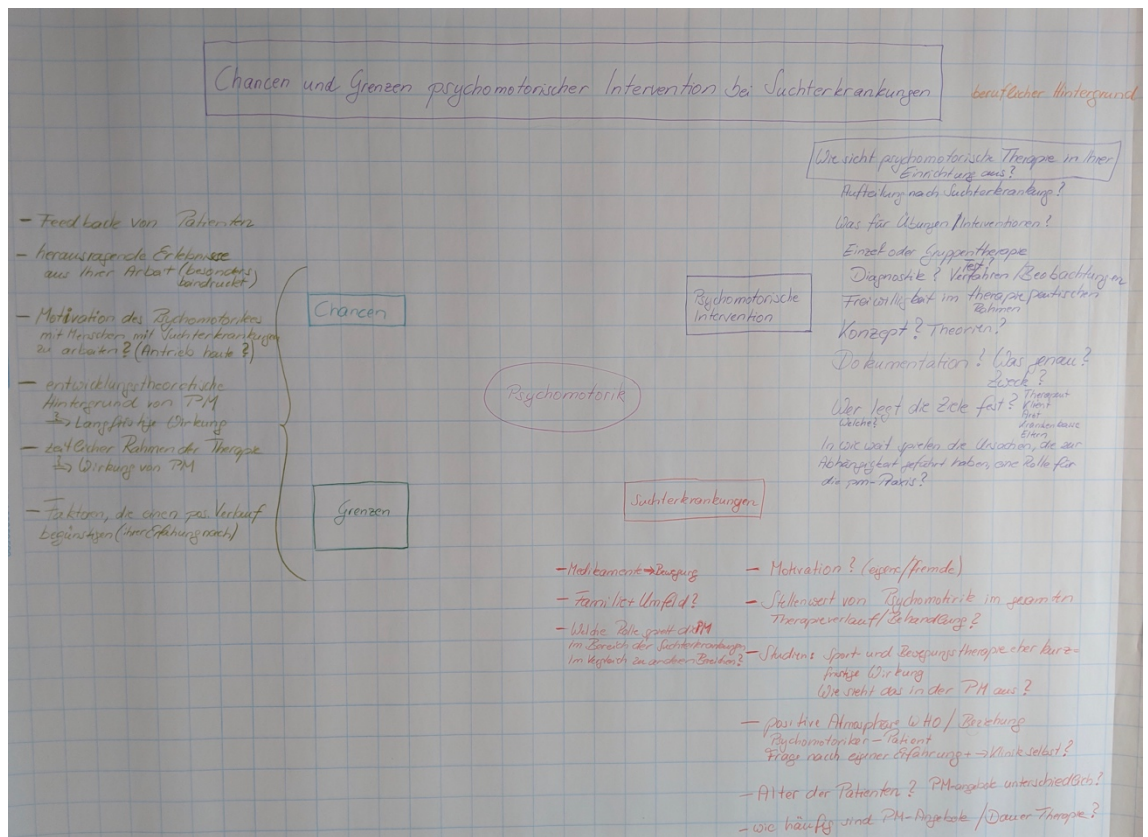 Chancen und Grenzen psychomotorischer Intervention bei Suchterkrankungen
beruflicher Hintergrund
Wie sieht psychomotorische Therapie in Ihrer
Einrichtung aus?
Aufteilung nach Suchterkrankung?
Was für Übungen/Interventionen?
Einzel oder Gruppentherapie
Diagnostik? Testverfahren/Beobachtungen
Freiwilligkeit im therapeutischen
Rahmen
Konzept? Theorien?
Dokumentation? Was genau?
Zweck?
Wer legt die Ziele fest?
Welche?
Therapeut
Klient
Arzt
Krankenkasse
Eltern
In wie weit spielen die Ursachen, die zur
Abhängigkeit geführt haben, eine Rolle für
die pm-Praxis?
Psychomotorische
Intervention
Psychomotorik
Chancen
Grenzen
- Feedback von Patienten
- herausragende Erlebnisse
aus Ihrer Arbeit (besonders
beindruckt)
- Motivation des Psychomotorikers
mit Menschen mit Suchterkrankungen
zu arbeiten? (Antrieb heute?)
- entwicklungstheoretische
Hintergrund von PM
↳ Langfristige Wirkung
- zeitlicher Rahmen der Therapie
↳ Wirkung von PM
- Faktoren, die einen pos. Verlauf
begünstigen (ihrer Erfahrung nach)
Suchterkrankungen
- Medikamente → Bewegung
- Familie + Umfeld?
- Welche Rolle spielt die PM
im Bereich der Suchterkrankungen
im Vergleich zu anderen Bereichen?
- Motivation? (eigene/fremde)
- Stellenwert von Psychomotorik im gesamten
Therapieverlauf/Behandlung?
- Studien: Sport und Bewegungstherapie eher kurz=
fristige Wirkung
Wie sieht das in der PM aus?
- positive Atmosphäre WHO / Beziehung
Psychomotoriker - Patient
Frage nach eigener Erfahrung + → Klinik selbst?
- Alter der Patienten? PM-angebote unterschiedlich?
- wie häufig sind PM-Angebote / Dauer Therapie?